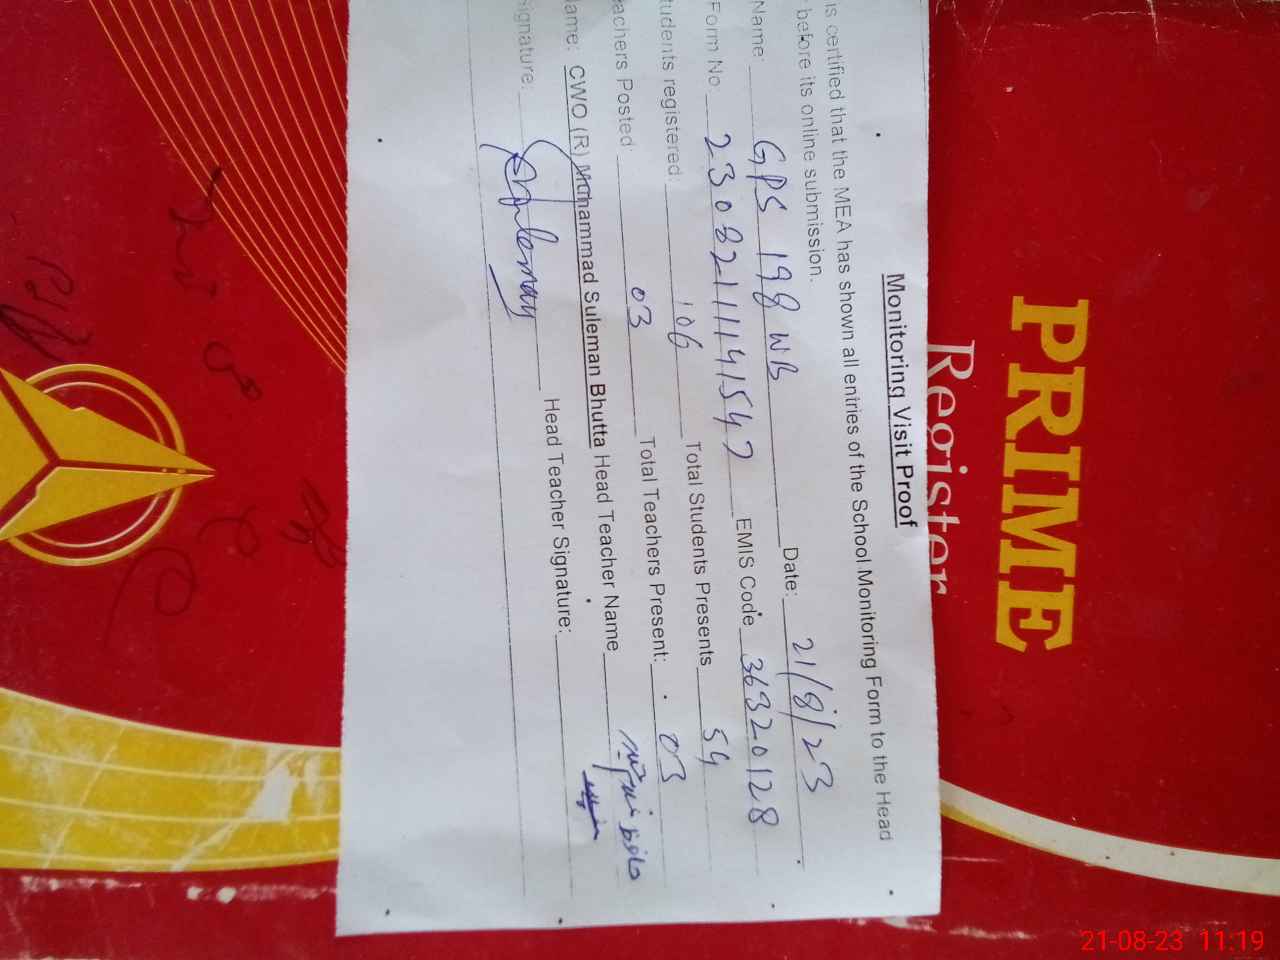 PRIME
Register
Monitoring Visit Proof
is certified that the MEA has shown all entries of the School Monitoring Form to the Head
before its online submission.
Name: GPS 198 WB Date: 21/8/23
Form No 23082111141547 EMIS Code 36320128
tudents registered: 106 Total Students Presents 54
eachers Posted 03 Total Teachers Present: 03
ame: CWO (R) Muhammad Suleman Bhutta Head Teacher Name
ignature: Head Teacher Signature:
21-08-23 11:19